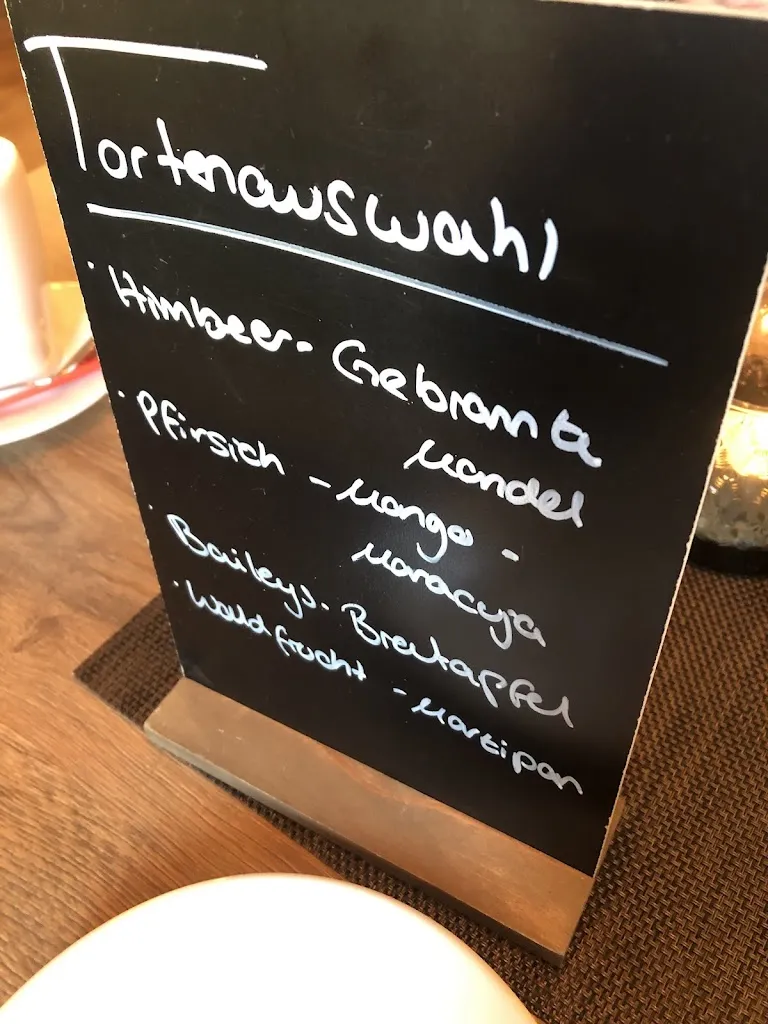 Tortenauswahl
· Himbeer - Gebrannte
Mandel
· Pfirsich - Mango -
Maracuja
· Baileys - Bratapfel
· Waldfrucht - Marzipan